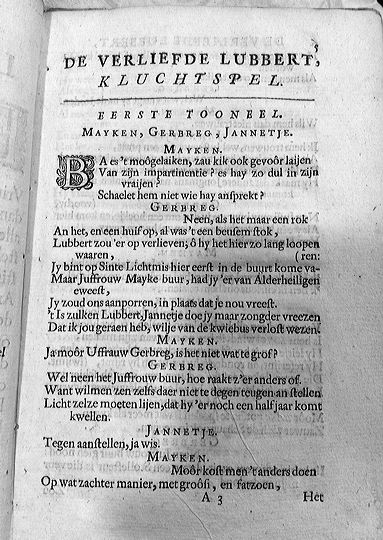 5
DE VERLIEFDE LUBBERT,
KLUCHTSPEL.
EERSTE TOONEEL.
MAYKEN, GERBREG, JANNETJE.
MAYKEN.
BA es 't moôgelaiken, zau kik ook gevoôr laijen
Van zijn impartinentie? es hay zo dul in zijn
vraijen?
Schaelet hem niet wie hay ansprekt?
GERBREG.
Neen, als het maar een rok
An het, en een huif op, al was 't een besem stok,
Lubbert zou 'er op verlieven; ô hy het hier zo lang loopen
waaren, (ren:
Jy bint op Sinte Lichtmis hier eerst in de buurt kome va-
Maar Juffrouw Mayke buur, had jy 'er van Alderheiligen
eweest,
Jy zoud ons aanporren, in plaats dat je nou vreest.
't Is zulken Lubbert, Jannetje doe jy maar zongder vreezen
Dat ik jou geraen heb, wilje van de kwiebus verlost wezen.
MAYKEN.
Ja moôr Uffrauw Gerbreg, is het niet wat te grof?
GERBREG.
Wel neen het Juffrouw buur, hoe raakt z'er anders of.
Want wilmen zen zelfs daer niet te degen teugen an stellen
Licht zelze moeten lijen, dat hy 'er noch een half jaar komt
kwellen.
JANNETJE.
Tegen aanstellen, ja wis.
MAYKEN.
Moôr kost men 't anders doen
Op wat zachter manier, met groôsi, en fatzoen,
A 3 Het